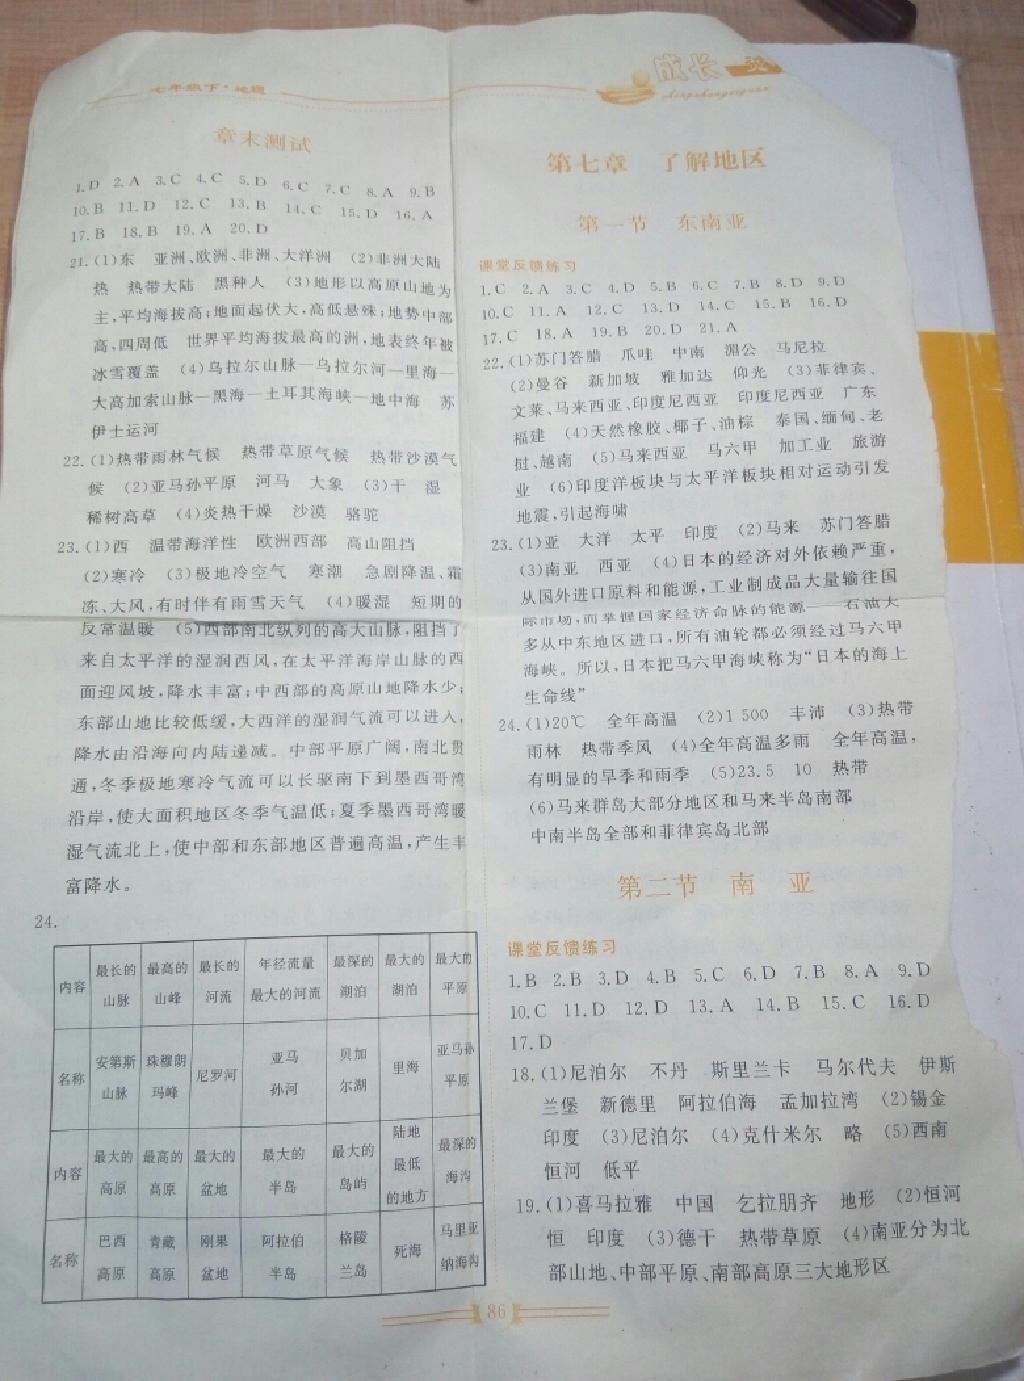 七年级下·地理
成长
章末测试
1.D 2.A 3.C 4.C 5.D 6.C 7.C 8.A 9.B
10.B 11.D 12.C 13.B 14.C 15.D 16.A
17.B 18.B 19.A 20.D
21.(1)东 亚洲、欧洲、非洲、大洋洲 (2)非洲大陆
热 热带大陆 黑种人 (3)地形以高原山地为
主,平均海拔高;地面起伏大,高低悬殊;地势中部
高,四周低 世界平均海拔最高的洲,地表终年被
冰雪覆盖 (4)乌拉尔山脉—乌拉尔河—里海—
大高加索山脉—黑海—土耳其海峡—地中海 苏
伊士运河
22.(1)热带雨林气候 热带草原气候 热带沙漠气
候 (2)亚马孙平原 河马 大象 (3)干 湿
稀树高草 (4)炎热干燥 沙漠 骆驼
23.(1)西 温带海洋性 欧洲西部 高山阻挡
(2)寒冷 (3)极地冷空气 寒潮 急剧降温、霜
冻、大风,有时伴有雨雪天气 (4)暖湿 短期的
反常温暖 (5)西部南北纵列的高大山脉,阻挡了
来自太平洋的湿润西风,在太平洋海岸山脉的西
面迎风坡,降水丰富;中西部的高原山地降水少;
东部山地比较低缓,大西洋的湿润气流可以进入,
降水由沿海向内陆递减。中部平原广阔,南北贯
通,冬季极地寒冷气流可以长驱南下到墨西哥湾
沿岸,使大面积地区冬季气温低;夏季墨西哥湾暖
湿气流北上,使中部和东部地区普遍高温,产生丰
富降水。
24.
内容 最长的山脉 最高的山峰 最长的河流 年径流量最大的河流 最深的湖泊 最大的湖泊 最大的平原
名称 安第斯山脉 珠穆朗玛峰 尼罗河 亚马孙河 贝加尔湖 里海 亚马孙平原
内容 最大的高原 最高的高原 最大的盆地 最大的半岛 最大的岛屿 陆地最低的地方 最深的海沟
名称 巴西高原 青藏高原 刚果盆地 阿拉伯半岛 格陵兰岛 死海 马里亚纳海沟
第七章 了解地区
第一节 东南亚
课堂反馈练习
1.C 2.A 3.C 4.D 5.B 6.C 7.B 8.D 9.D
10.C 11.A 12.C 13.D 14.C 15.B 16.D
17.C 18.A 19.B 20.D 21.A
22.(1)苏门答腊 爪哇 中南 湄公 马尼拉
(2)曼谷 新加坡 雅加达 仰光 (3)菲律宾、
文莱、马来西亚、印度尼西亚 印度尼西亚 广东
福建 (4)天然橡胶、椰子、油棕 泰国、缅甸、老
挝、越南 (5)马来西亚 马六甲 加工业 旅游
业 (6)印度洋板块与太平洋板块相对运动引发
地震,引起海啸
23.(1)亚 大洋 太平 印度 (2)马来 苏门答腊
(3)南亚 西亚 (4)日本的经济对外依赖严重,
从国外进口原料和能源,工业制成品大量输往国
际市场,而掌握国家经济命脉的能源——石油大
多从中东地区进口,所有油轮都必须经过马六甲
海峡。所以,日本把马六甲海峡称为“日本的海上
生命线”
24.(1)20℃ 全年高温 (2)1 500 丰沛 (3)热带
雨林 热带季风 (4)全年高温多雨 全年高温,
有明显的旱季和雨季 (5)23.5 10 热带
(6)马来群岛大部分地区和马来半岛南部
中南半岛全部和菲律宾岛北部
第二节 南亚
课堂反馈练习
1.B 2.B 3.D 4.B 5.C 6.D 7.B 8.A 9.D
10.C 11.D 12.D 13.A 14.B 15.C 16.D
17.D
18.(1)尼泊尔 不丹 斯里兰卡 马尔代夫 伊斯
兰堡 新德里 阿拉伯海 孟加拉湾 (2)锡金
印度 (3)尼泊尔 (4)克什米尔 略 (5)西南
恒河 低平
19.(1)喜马拉雅 中国 乞拉朋齐 地形 (2)恒河
恒 印度 (3)德干 热带草原 (4)南亚分为北
部山地、中部平原、南部高原三大地形区
86